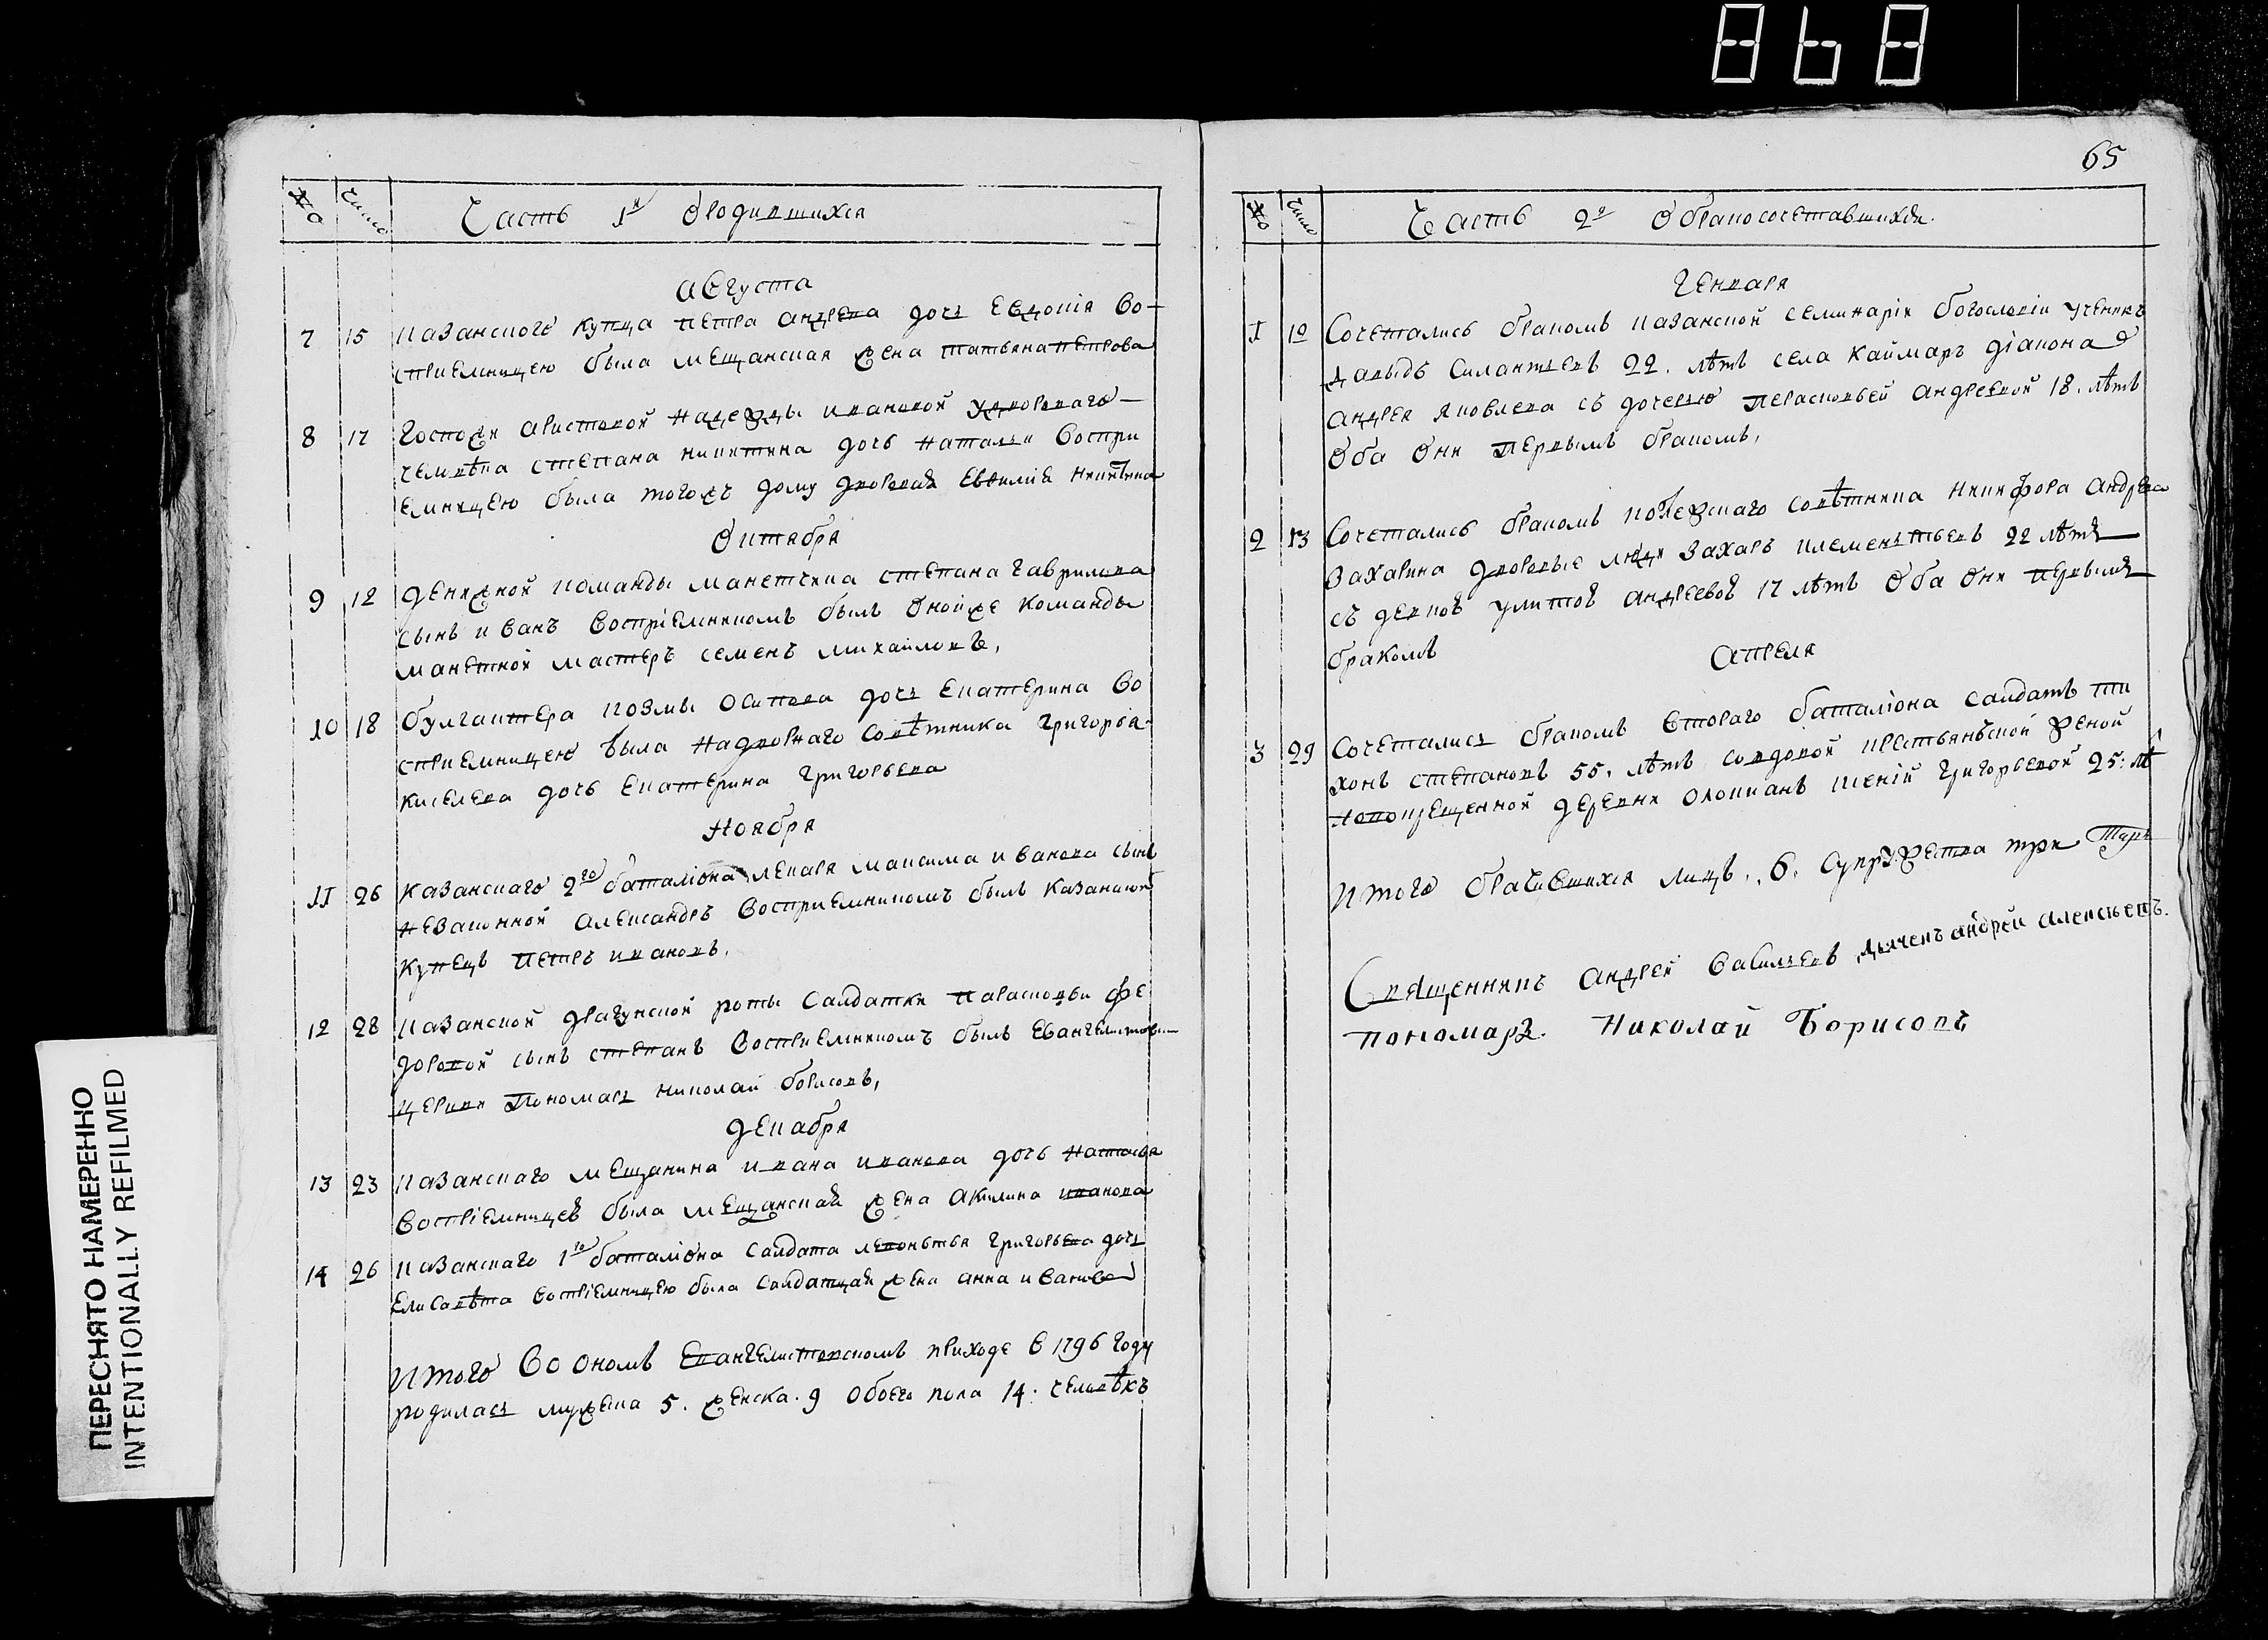 868
№ Число Часть 1я о родившихся
Августа
7 15 Казанского купца Петра Андреева дочь Евдокія во-
спріемницею была мещанская жена Татьяна Петрова
8 17 Господи Аристовой Надежды Ивановой
человѣка Степана Никитина дочь Наталья воспри
емницею была того жъ дому дворовая Никитина
Октября
9 12 Денежной команды манетчика Степана Гаврилова
сынъ Иванъ воспріемникомъ былъ оной же команды
манетной мастеръ Семенъ Михайловъ,
10 18 Булгактера Козмы Осипова дочь Екатерина во
спріемницею была надворнаго совѣтника Григорья
Киселева дочь Екатерина Григорьева
Ноября
11 26 Казанскаго 2го баталіона лекаря Максима Иванова сынъ
незаконной Александръ воспріемникомъ былъ казанской
купецъ Петръ Ивановъ.
12 28 Казанской драгунской роты салдатки Парасковьи Фе
доровой сынъ Степанъ воспріемникомъ былъ Евангелистов
церкви пономарь Николай Борисовъ,
Декабря
13 23 Казанскаго мещанина Ивана Иванова дочь Наталья
воспріемницею была мещанская жена Акилина Иванова
14 26 Казанскаго 1го баталіона салдата Леонтья Григорьева дочь
Елисавѣта воспріемницею была салдатцкая жена Анна Иванова
Итого во ономъ Евангелистовскомъ приходе в 1796 году
родилась мужеска 5. женска. 9 обоего пола 14. человѣкъ
65
№ Число Часть 2я о бракосочетавшихся.
Генваря
1 10 Сочетались бракомъ казанской семинаріи богословіи ученикъ
Давыдъ Силантьевъ 22. лѣтъ села Каймаръ діакона
Андрея Яковлева съ дочерью Параскевьей Андреевой 18. лѣтъ
оба они первымъ бракомъ,
2 13 Сочетались бракомъ колежскаго совѣтника Никифора Андреева
Захарина дворовые люди Захаръ Клементьевъ 22 лѣтъ
съ девкой Улитой Андреевой 17 лѣтъ оба они первымъ
бракомъ
Апреля
3 29 Сочетались бракомъ втораго баталіона салдатъ Ти
хонъ Степановъ 55. лѣтъ со вдовой крестьянской женой
новокрещенной деревни Григорьевой 25: лѣ
Итого брачившихся лицъ. 6. супружества три
Священникъ Андрей Васильевъ дьячекъ андрей алексѣевъ.
пономарь. Николай Борисовъ
ПЕРЕСНЯТО НАМЕРЕННО
INTENTIONALLY REFILMED